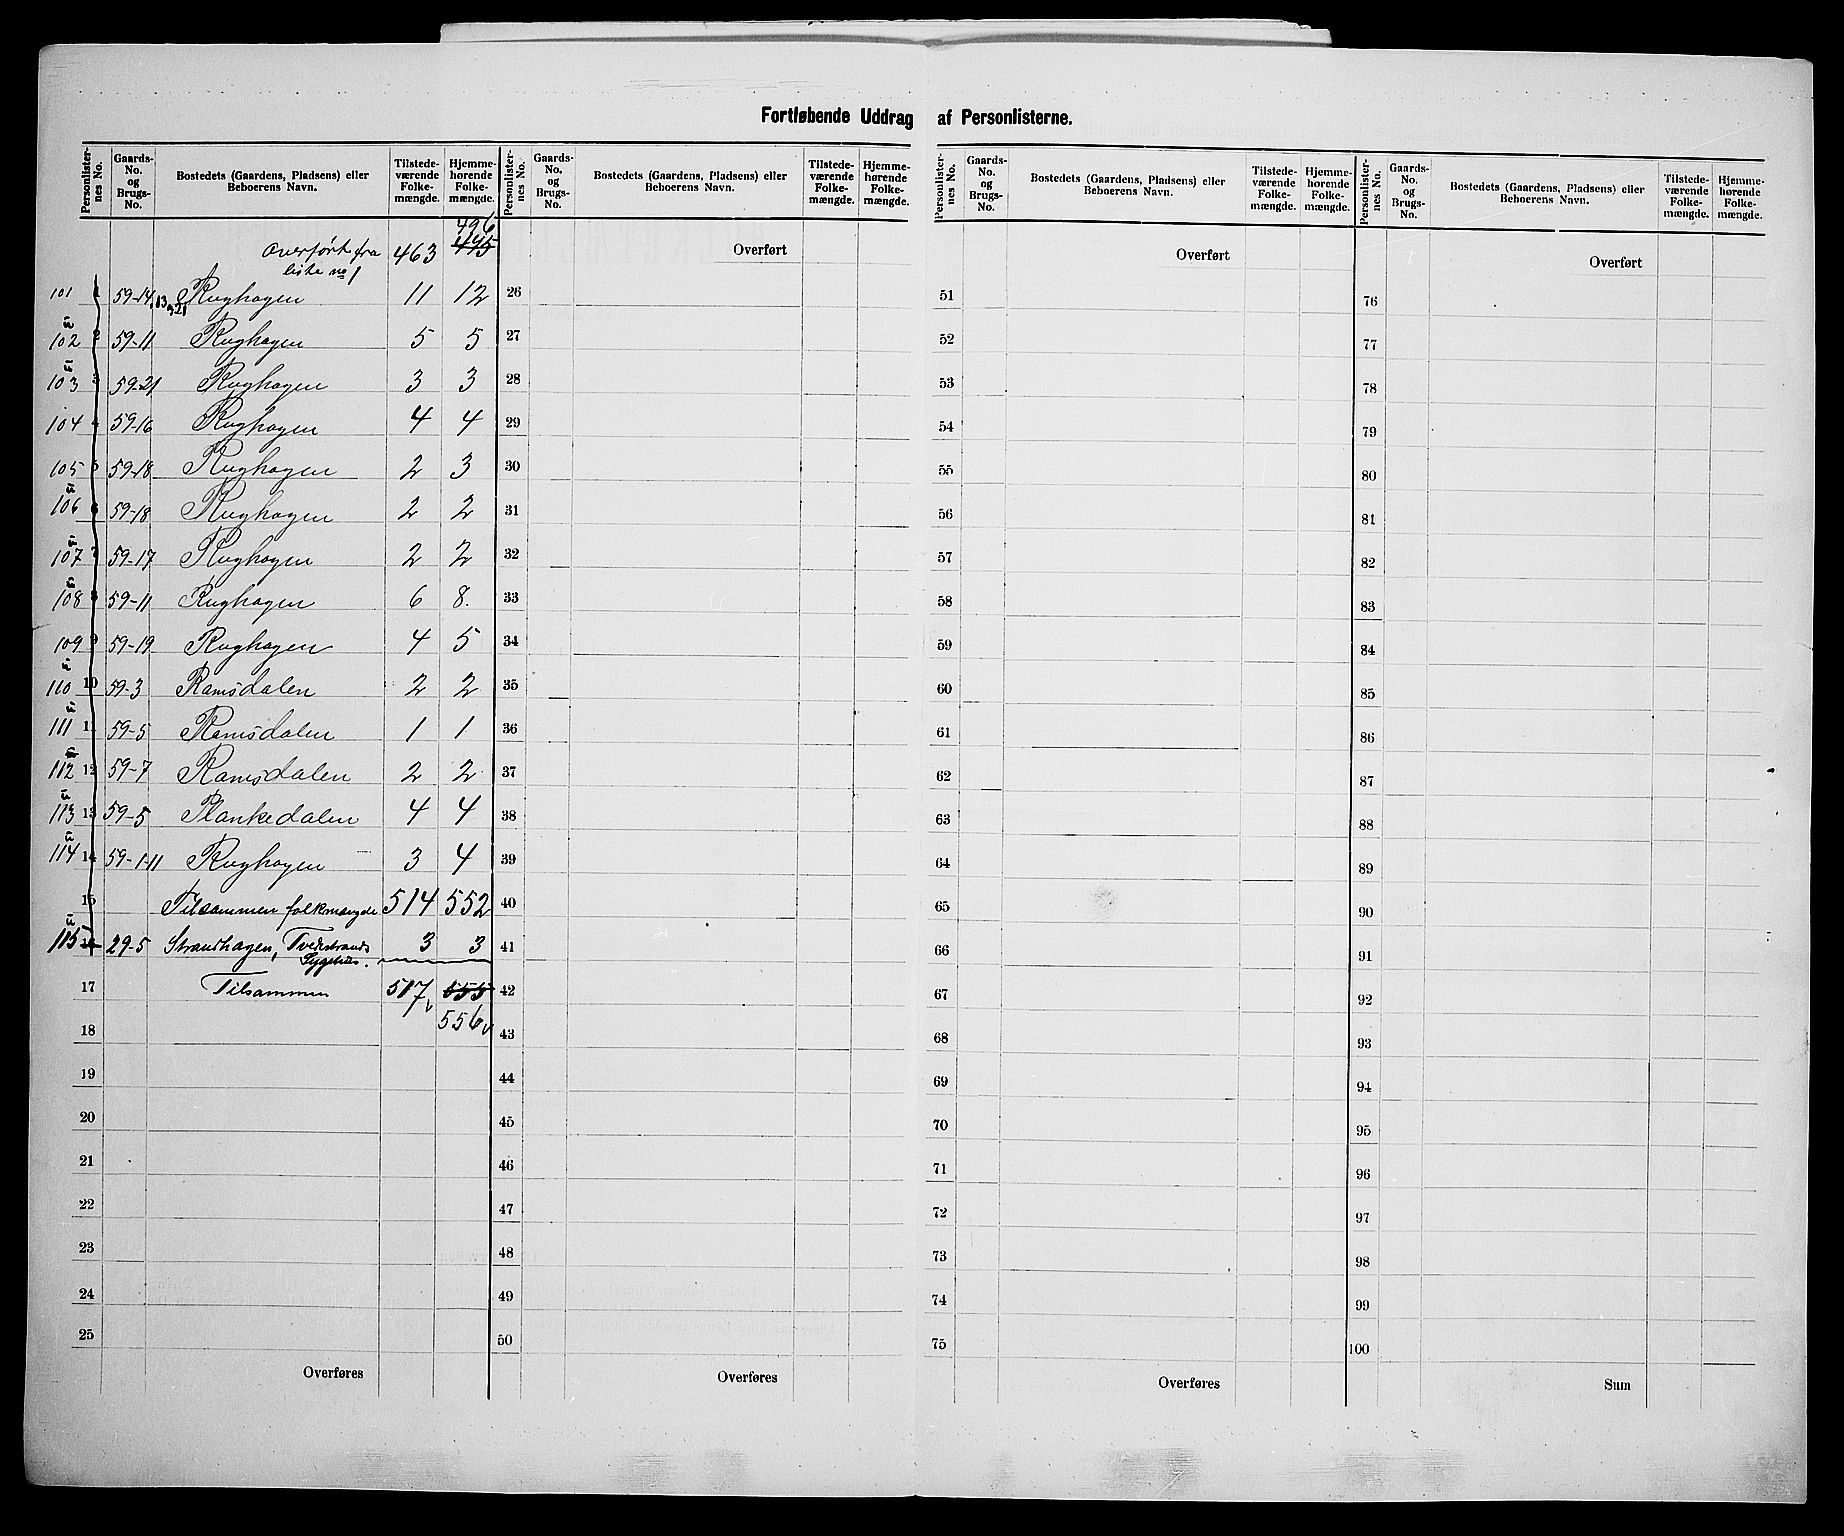 Fortløbende Uddrag af Personlisterne.
Personlister-nes No. Gaards-No. og Brugs-No. Bostedets (Gaardens, Pladsens) eller Beboerens Navn. Tilstede-værende Folke-mængde. Hjemme-hørende Folke-mængde.
496
Overført fra 463 495
liste no 1
101 1 59-14,13,21 Rughagen 11 12
102 2 59-11 Rughagen 5 5
103 3 59-21 Rughagen 3 3
104 4 59-16 Rughagen 4 4
105 5 59-18 Rughagen 2 3
106 6 59-18 Rughagen 2 2
107 7 59-17 Rughagen 2 2
108 8 59-11 Rughagen 6 8.
109 9 59-19 Rughagen 4 5
110 10 59-3 Ramsdalen 2 2
111 11 59-5 Ramsdalen 1 1
112 12 59-7 Ramsdalen 2 2
113 13 59-5 Plankedalen 4 4
114 14 59-1-11 Rughagen 3 4
15 Tilsammen folkmængde 514 552
115 16 29-5 Strandhagen, Tvedestrands 3 3
Sygehus.
17 Tilsammen 517 555
18 556
19
20
21
22
23
24
25
Overføres
Personlister-nes No. Gaards-No. og Brugs-No. Bostedets (Gaardens, Pladsens) eller Beboerens Navn. Tilstede-værende Folke-mængde. Hjemme-hørende Folke-mængde.
Overført
26
27
28
29
30
31
32
33
34
35
36
37
38
39
40
41
42
43
44
45
46
47
48
49
50
Overføres
Personlister-nes No. Gaards-No. og Brugs-No. Bostedets (Gaardens, Pladsens) eller Beboerens Navn. Tilstede-værende Folke-mængde. Hjemme-hørende Folke-mængde.
Overført
51
52
53
54
55
56
57
58
59
60
61
62
63
64
65
66
67
68
69
70
71
72
73
74
75
Overføres
Personlister-nes No. Gaards-No. og Brugs-No. Bostedets (Gaardens, Pladsens) eller Beboerens Navn. Tilstede-værende Folke-mængde. Hjemme-hørende Folke-mængde.
Overført
76
77
78
79
80
81
82
83
84
85
86
87
88
89
90
91
92
93
94
95
96
97
98
99
100
Sum